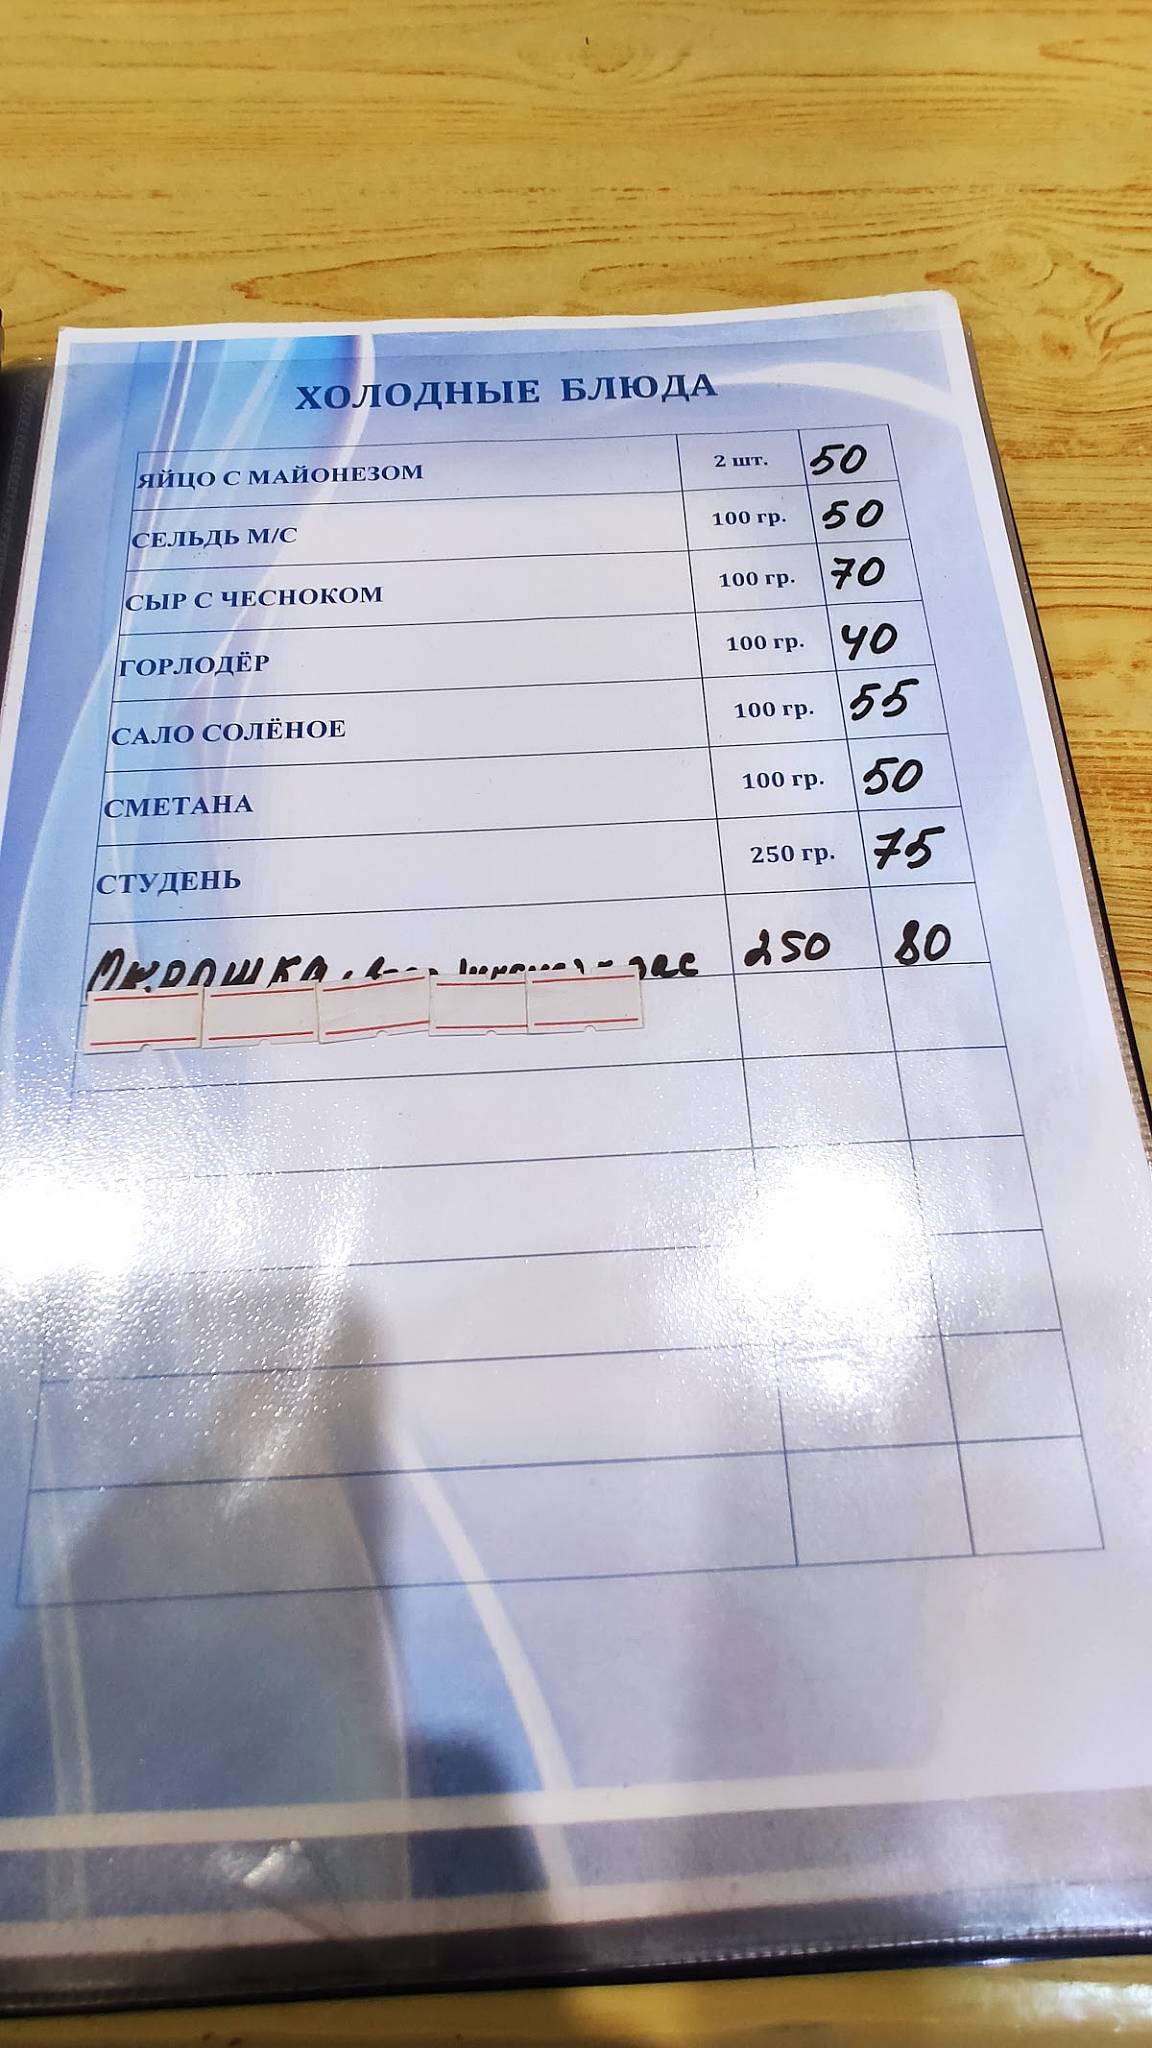 ХОЛОДНЫЕ БЛЮДА
ЯЙЦО С МАЙОНЕЗОМ 2 шт. 50
СЕЛЬДЬ М/С 100 гр. 50
СЫР С ЧЕСНОКОМ 100 гр. 70
ГОРЛОДЁР 100 гр. 40
САЛО СОЛЁНОЕ 100 гр. 55
СМЕТАНА 100 гр. 50
СТУДЕНЬ 250 гр. 75
ОКРОШКА 250 80